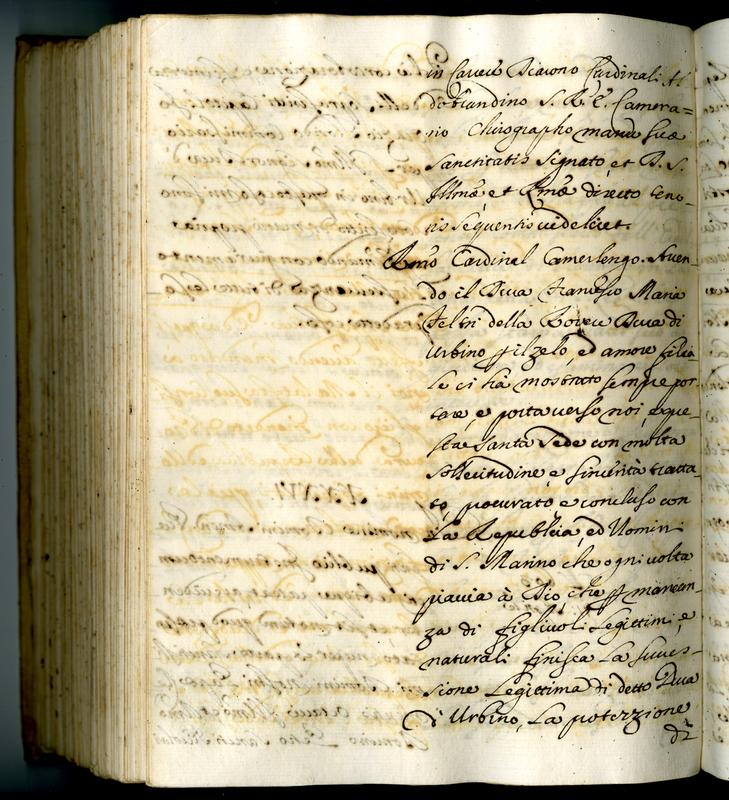 in Carcere Diacono Cardinali Al
dobrandino S. R. E. Camera=
rio Chirographo manu suæ
Sanctitatis signato, et D. S.
Illmæ et Rmæ directo teno-
ris sequentis videlicet.
Rmo Cardinal Camerlengo. Aven-
do il Duca Francesco Maria
Feltri della Rovere Duca di
Urbino p il zelo, ed amore filia
le ci hà mostrato sempre por
tare, e porta verso noi, e que
sta Santa Sede con molta
sollecitudine e sincerità tratta
to, procurato, e concluso con
La Republica, ed Uomini
di S. Marino che ogni volta
piacia à Dio, che p mancan
za di figlivoli Legittimi, e
naturali finisca La succes-
sione Legittima di detto Duca
d'Urbino, La potezzione
di